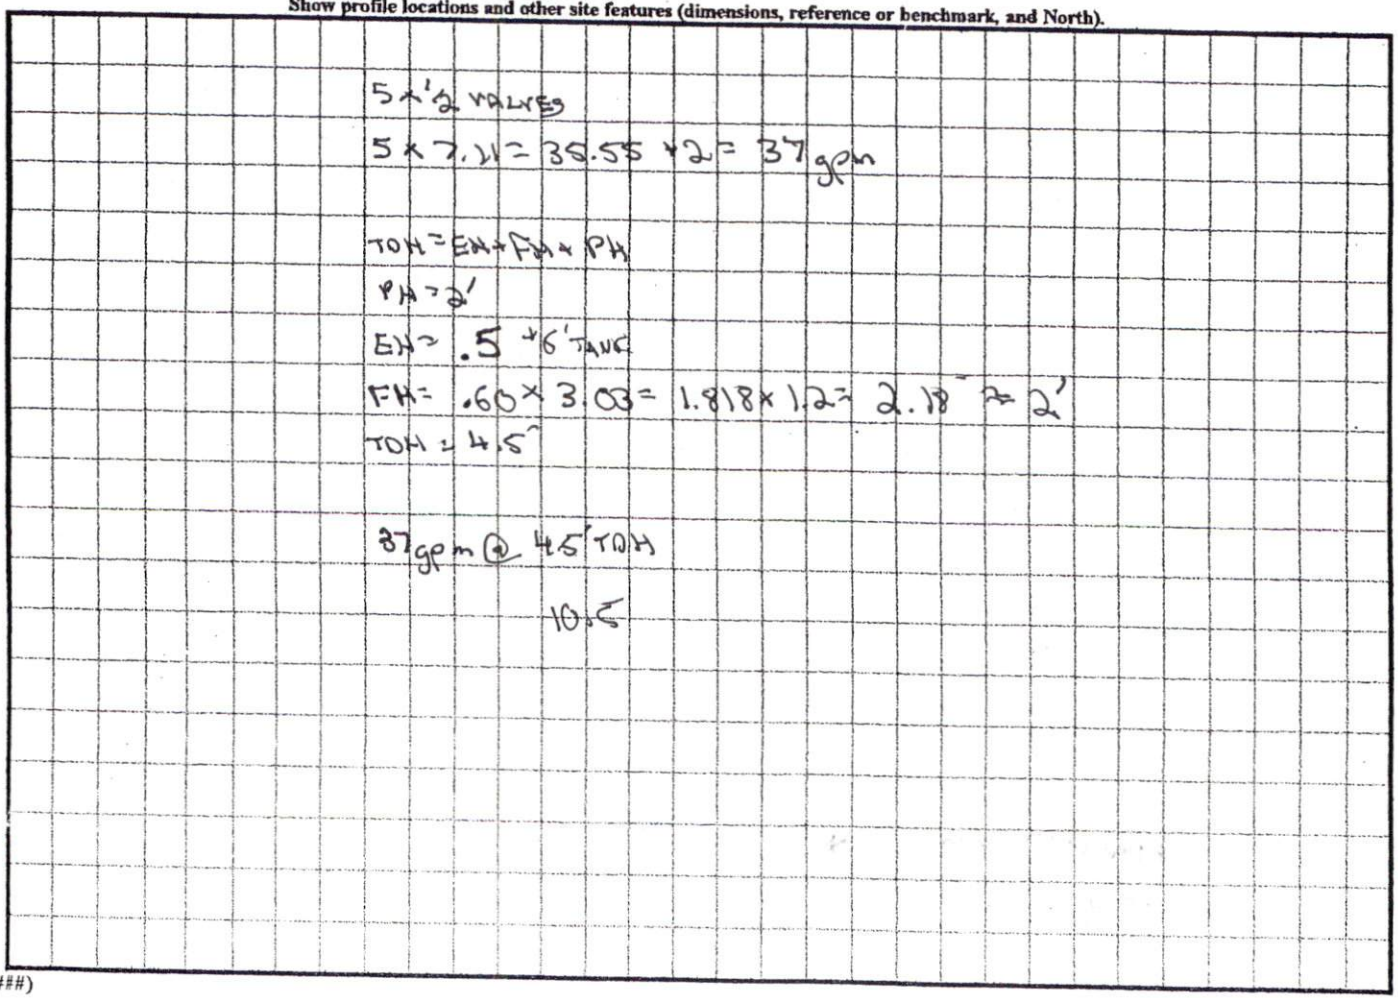 Show profile locations and other site features (dimensions, reference or benchmark, and North).
5 x 1/2 VALVES
5 x 7.11 = 35.55 +2 = 37 gpm
TDH = EH + FH + PH
PH = 2'
EH = .5 +6' TANK
FH = .60 x 3.03 = 1.818 x 1.2 = 2.18 ≈ 2'
TDH = 4.5'
37 gpm @ 4.5' TDH
10.5
###)